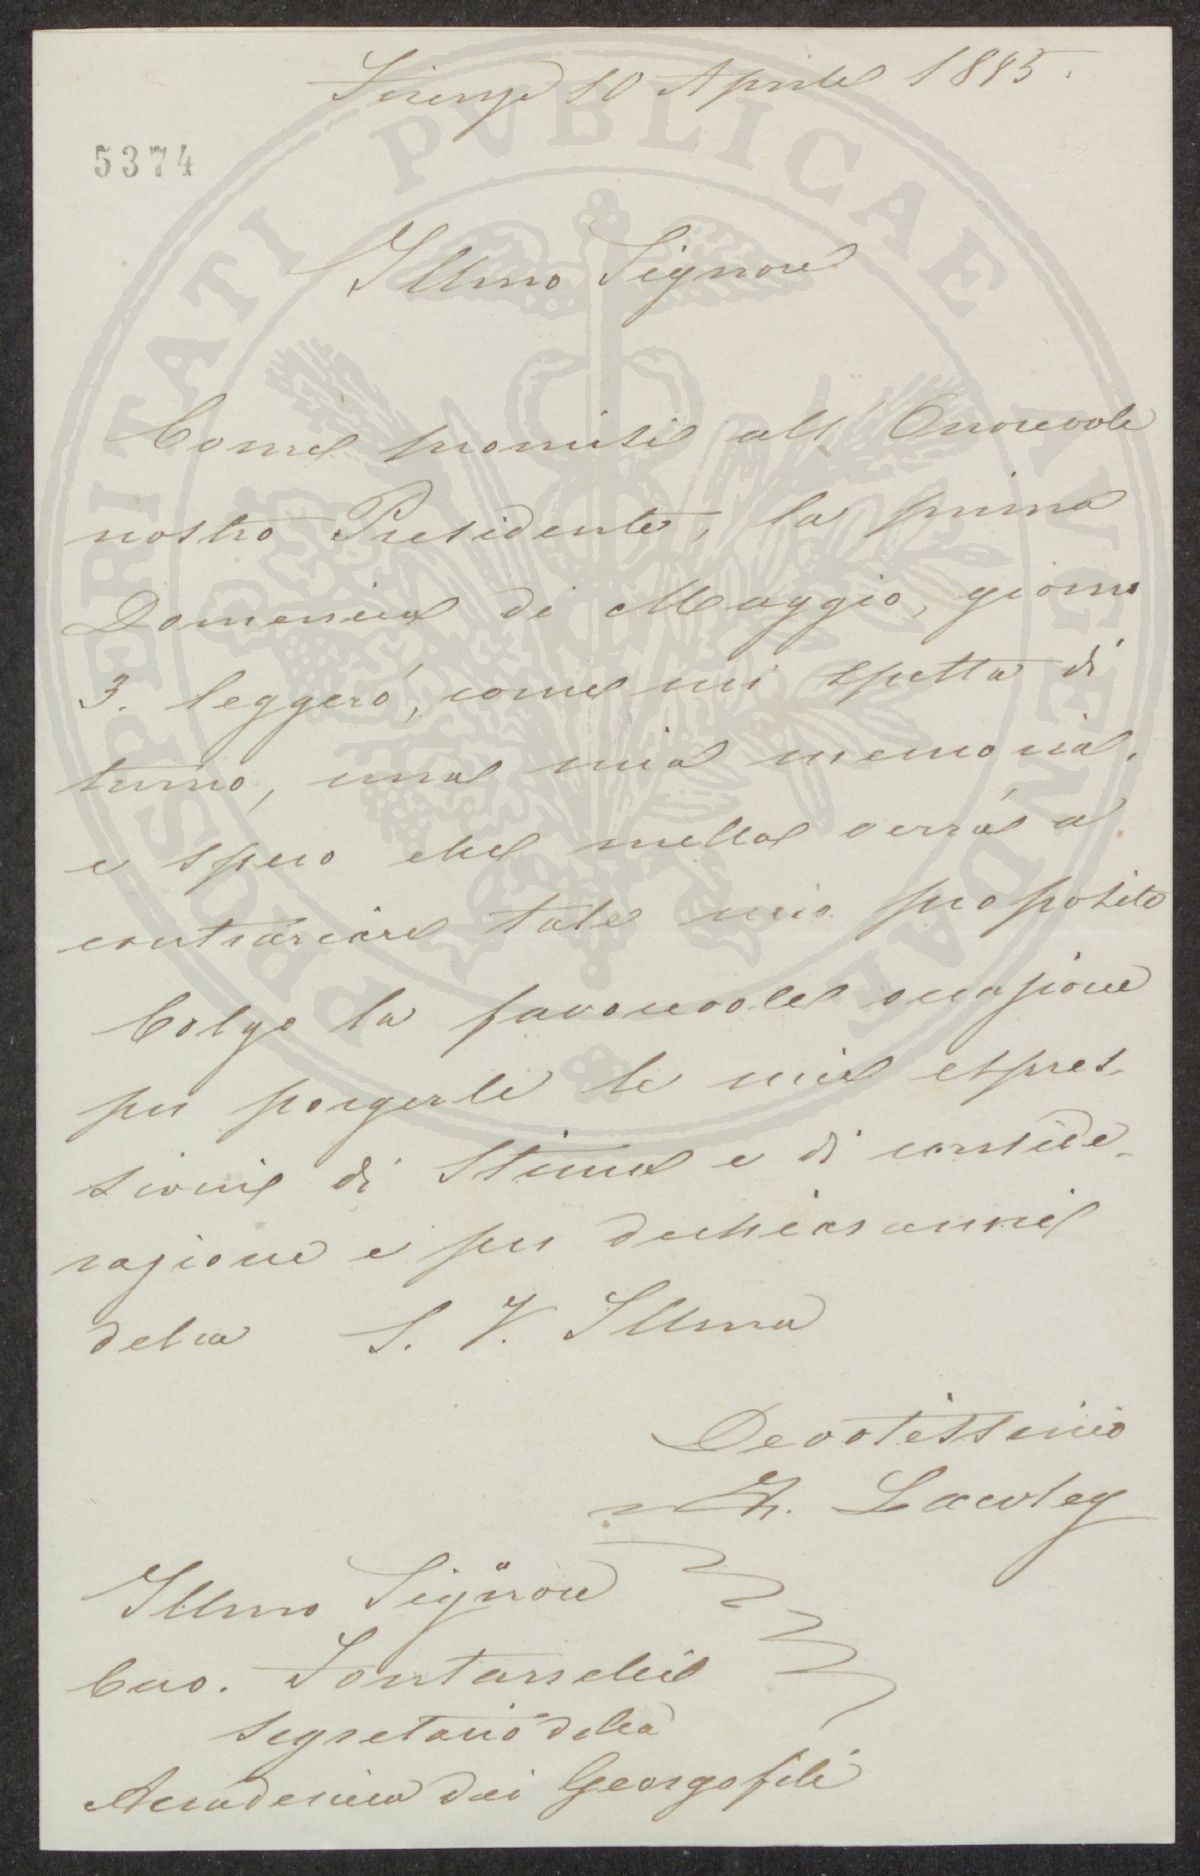 Firenze 10 Aprile 1885.
5374
Illmo Signore
Come promisi all' Onorevole
nostro Presidente, la prima
Domenica di Maggio, giorno
3. leggeró, come mi spetta di
turno, una mia memoria.
e spero che nulla verrà a
contrariare tale mio proposito
Colgo la favorevole occasione
per porgerle le mie espres-
sioni di stima e di conside-
razione e per dichiararmi
della S. V. Illma
Devotissimo
Lawley
Illmo Signore
Cav. Fontanelli
segretario della
Accademia dei Georgofili
PROSPERITATI PVBLICAE AVGENDAE